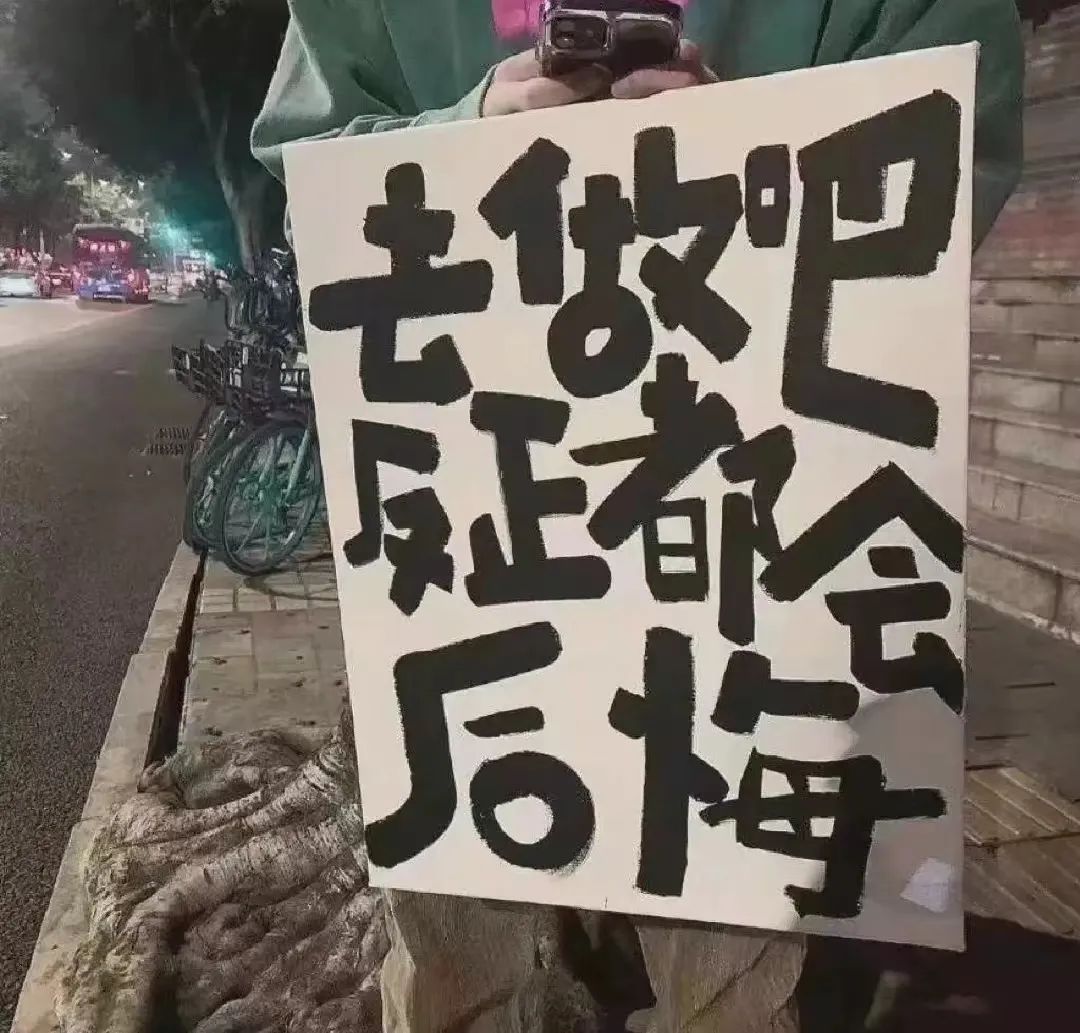 去做吧
反正都会
后悔